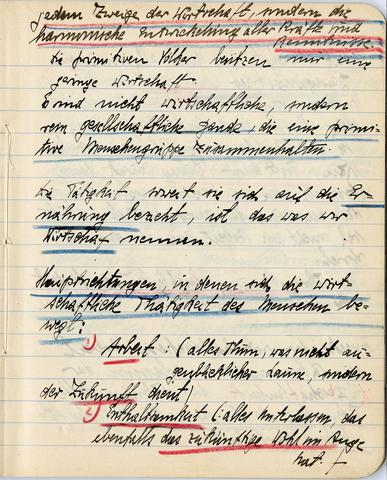 jedem Zweige der Wirtschaft, sondern die
harmonische Entwickelung aller Kräfte und
Die primitiven Völker besitzen nur eine
geringe Wirtschaft.
Es sind nicht wirtschaftliche, sondern
rein gesellschaftliche Bande, die eine primi-
tive Menschengruppe zusammenhalten.
Die Tätigkeit soweit sie sich auf die Er-
nährung bezieht, ist das was wir
Wirtschaf nennen.
Hauptrichtungen, in denen sich die wirt-
schaftliche Thätigkeit des Menschen be-
wegt:
1) Arbeit: (alles Thun, was nicht au-
genblicklicher Laune, sondern
der Zukunft dient)
2) Enthaltsamkeit (: alles Unterlassen, das
ebenfalls das zukünftige Wohl im Auge
hat.